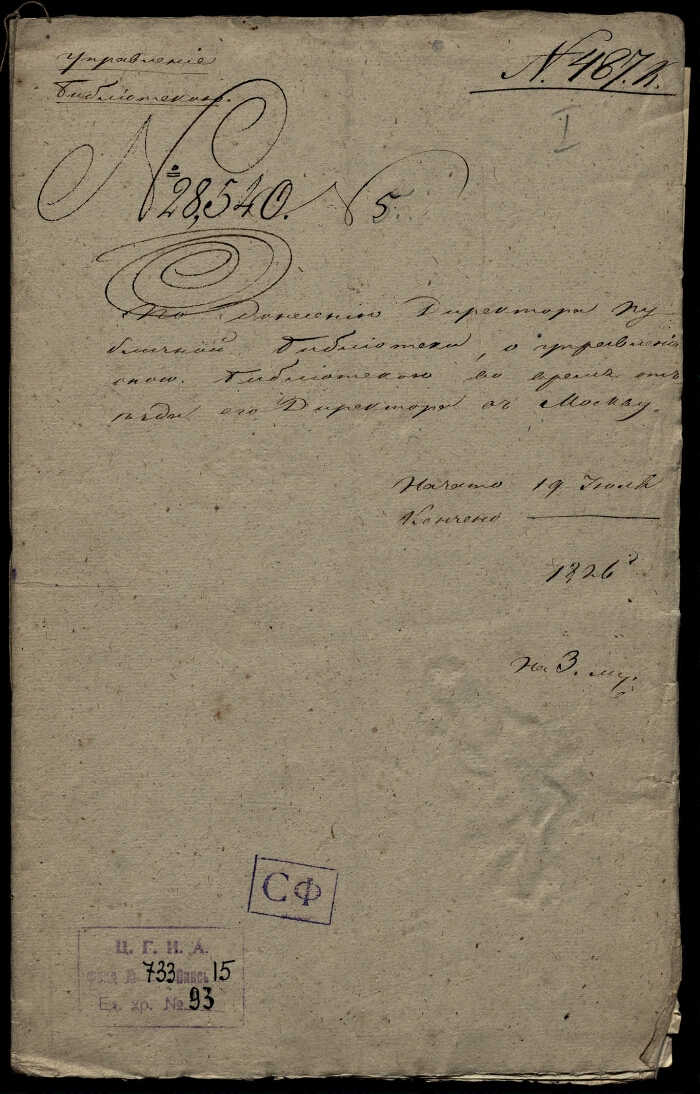 Управленіе
библіотекою.
N. 487. К.
I
№ 28,540. N 5.
По донесенію Директора Пу-
бличной библіотеки, о управленіи
оною библіотекою во время отъ
ѣзда его Директора въ Москву.
Начато 19 Іюля
Кончено
1826
На 3.
СФ
Ц. Г. И. А.
Фонд № 733 Опись 15
Ед. хр. № 93